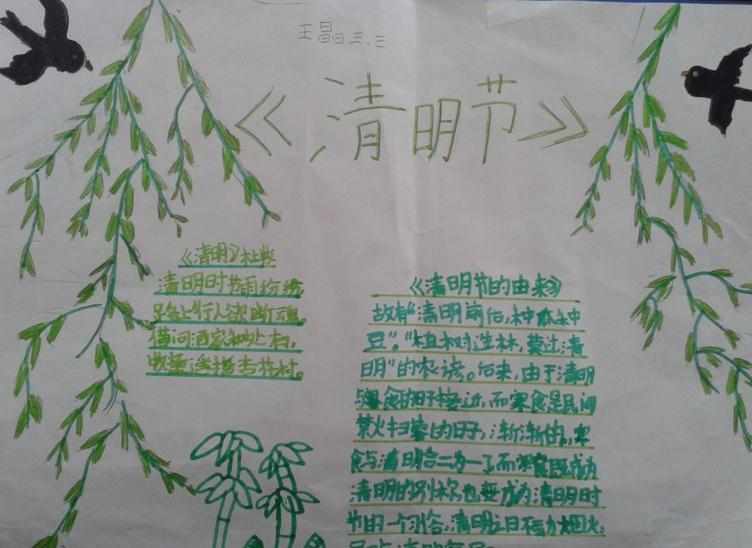 王昌日三.三
《清明节》
《清明》杜牧
清明时节雨纷纷
路上行人欲断魂
借问酒家何处有,
牧童遥指杏花村.
《清明节的由来》
故有“清明前后,种瓜种
豆”。“植树造林,莫过清
明”的农谚。后来,由于清明
与寒食的日子接近,而寒食是民间
禁火扫墓的日子,渐渐的,寒
食与清明合二为一了而寒食既成为
清明的别称也变成为清明时
节的一个习俗,清明之日不动烟火,